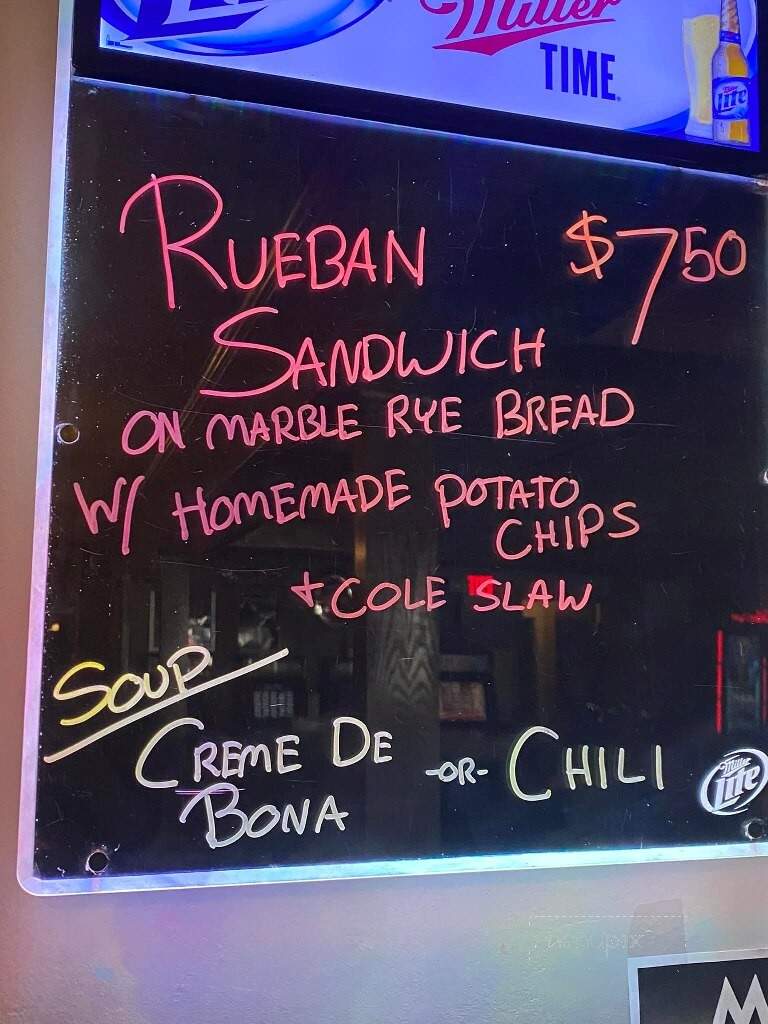 Miller
TIME
Lite
RUEBAN $7.50
SANDWICH
ON MARBLE RYE BREAD
W/ HOMEMADE POTATO
CHIPS
+ COLE SLAW
SOUP
CREME DE -OR- CHILI
BONA
Miller
Lite
M